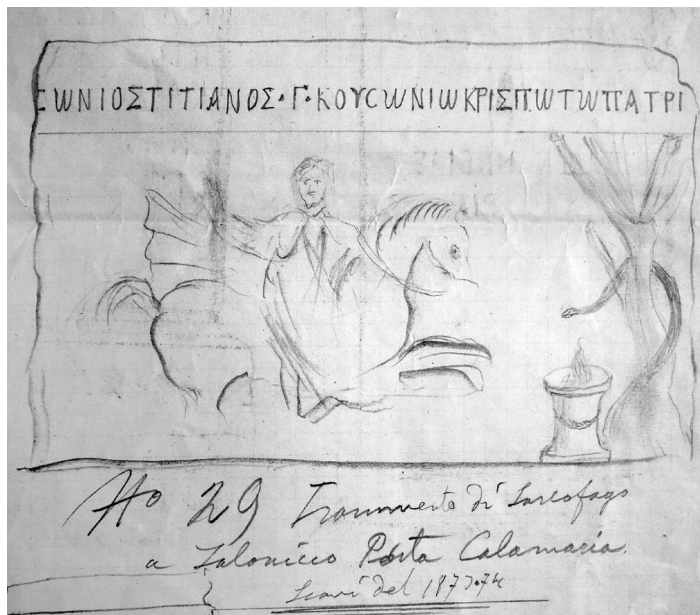 ΣΩΝΙΟΣΤΙΤΙΑΝΟΣ·Γ·ΚΟΥCΩΝΙΩΚΡΙΣΠΩΤΩΠΑΤΡΙ
No 29 Frammento di Sarcofago
a Salonicco Porta Calamaria.
Scavi del 1873-74